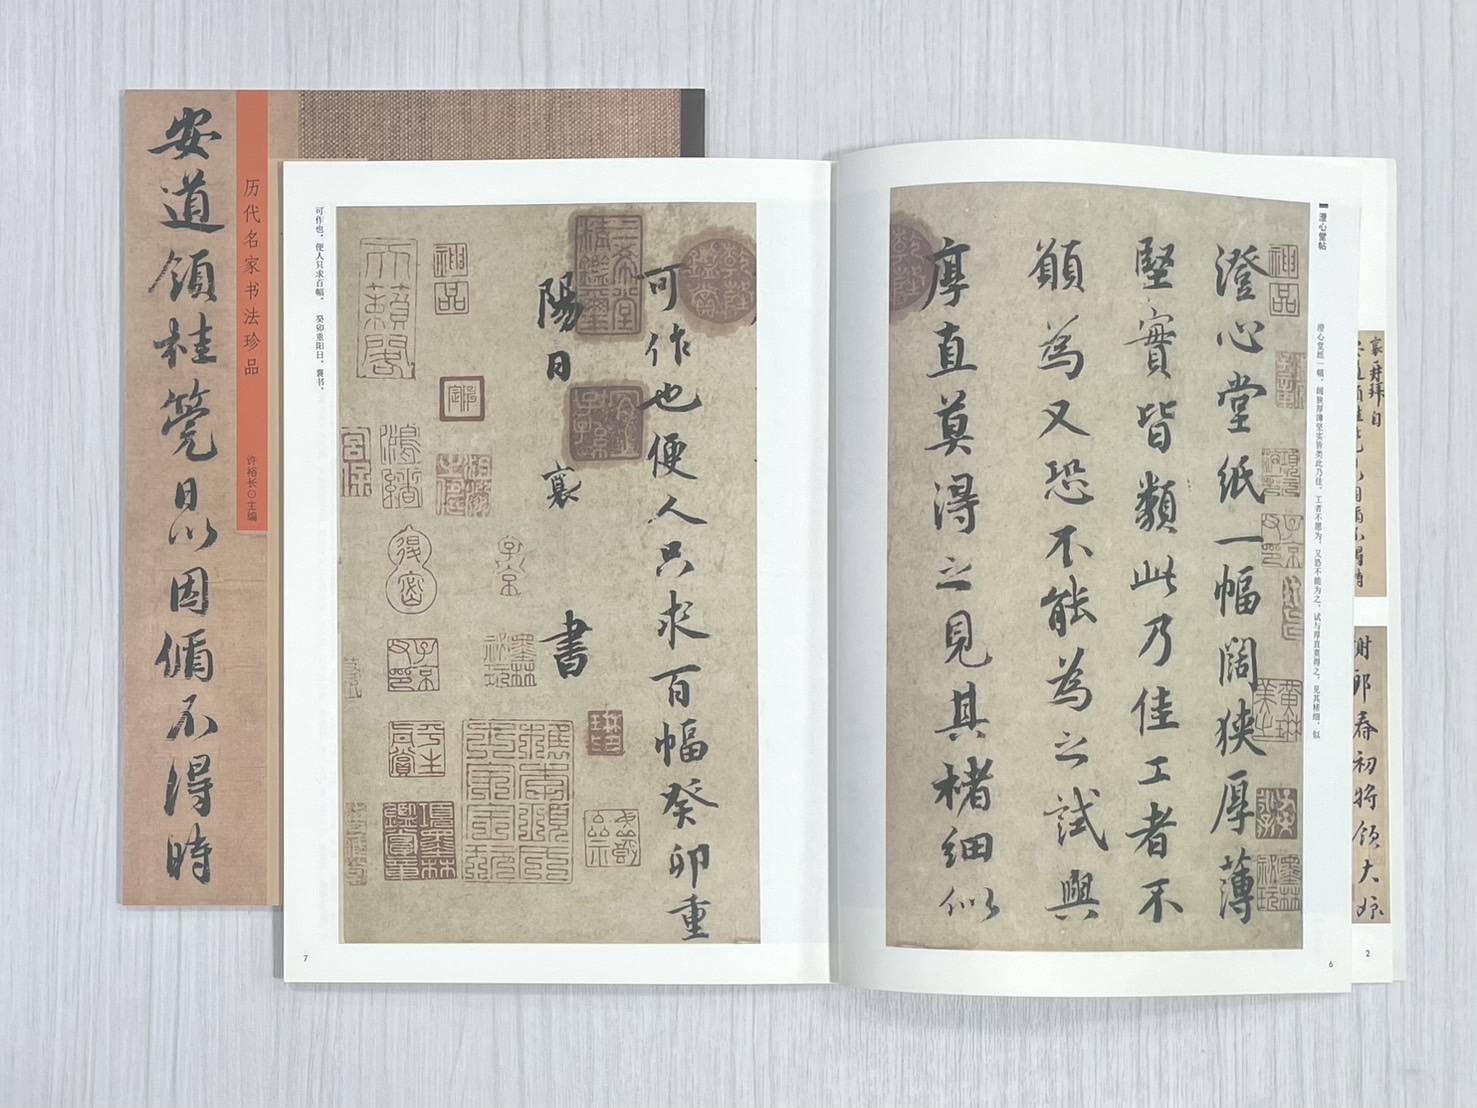 安道領桂筦日以因循不得時
历代名家书法珍品
许裕长⊙主编
澄心堂帖
澄心堂纸一幅，阔狭厚薄坚实皆类此乃佳。工者不愿为，又恐不能为之。试与厚直莫得之，见其楮细，似
神品
澄心堂紙一幅闊狹厚薄
堅實皆類此乃佳工者不
願為又恐不能為之試與
厚直莫得之見其楮細似
6
可作也便人只求百幅癸卯重
陽日襄書
神品
可作也，便人只求百幅。癸卯重阳日，襄书。
7
謝郎春初將領大娘
2